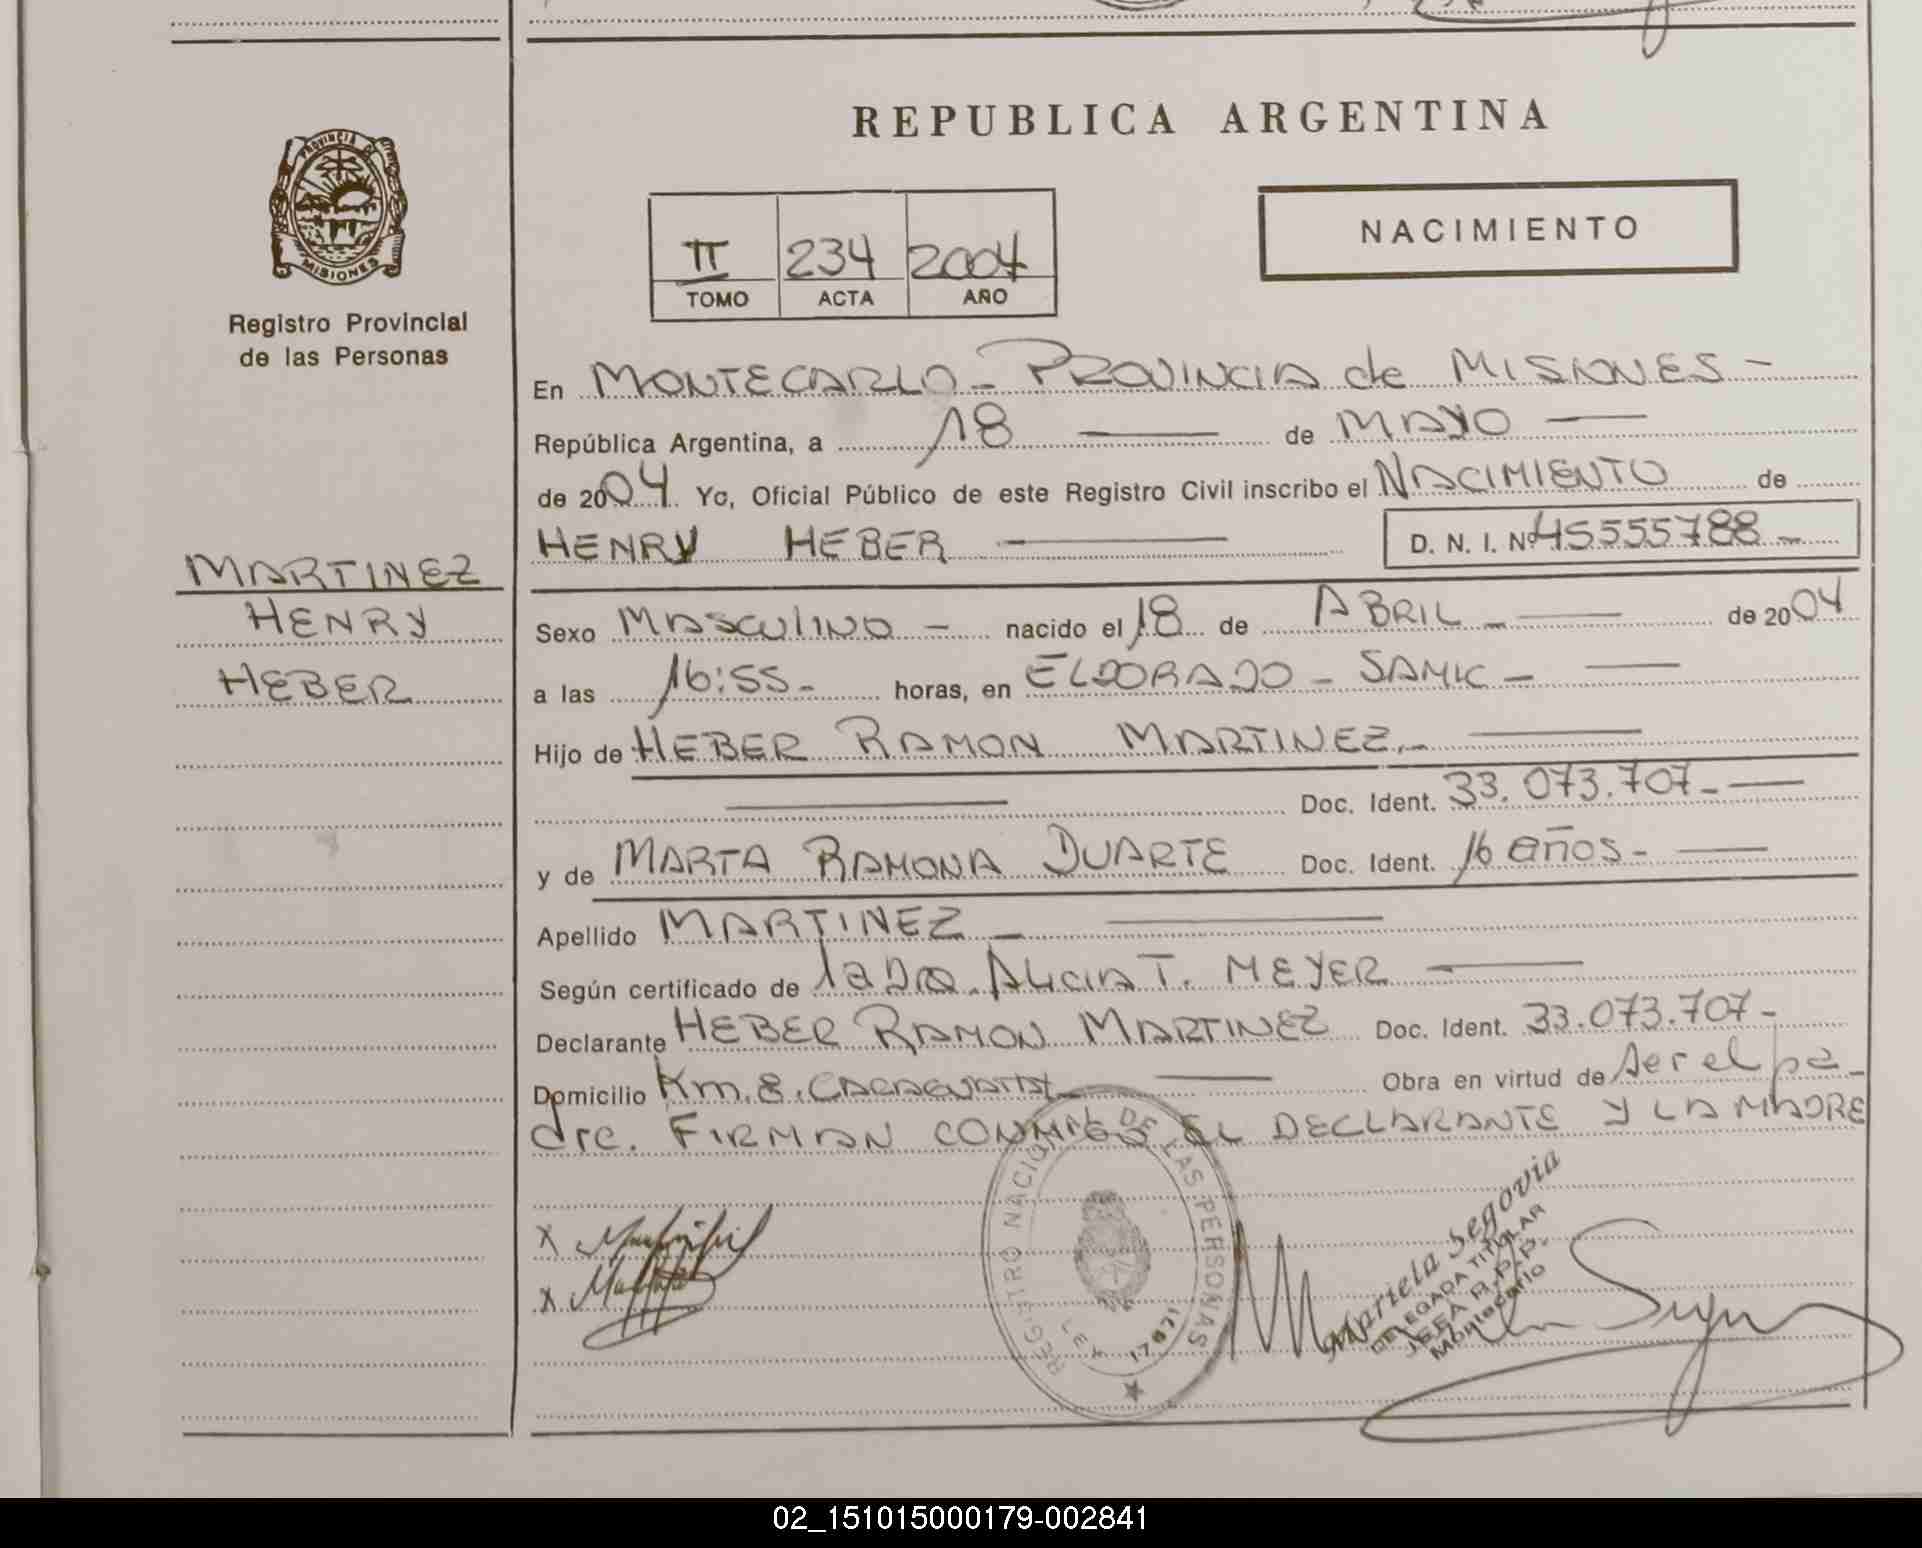 REPUBLICA ARGENTINA
PROVINCIA DE
MISIONES
Registro Provincial
de las Personas
II 234 2004
TOMO ACTA AÑO
NACIMIENTO
En MONTECARLO - PROVINCIA de MISIONES -
República Argentina, a 18 — de MAYO —
de 2004. Yo, Oficial Público de este Registro Civil inscribo el NACIMIENTO de
HENRY HEBER — D. N. I. Nº 45555788 -
MARTINEZ
HENRY
HEBER
Sexo MASCULINO - nacido el 18 de ABRIL - — de 2004
a las 16:55 - horas, en ELDORADO - SAMIC - —
Hijo de HEBER RAMON MARTINEZ. - —
— Doc. Ident. 33.073.707 - —
y de MARTA RAMONA DUARTE Doc. Ident. 16 años - —
Apellido MARTINEZ - —
Según certificado de la Dra. ALICIA T. MEYER —
Declarante HEBER RAMON MARTINEZ Doc. Ident. 33.073.707 -
Domicilio Km. 8. CARAGUATAY — Obra en virtud de ser el pa-
dre. FIRMAN CONMIGO EL DECLARANTE Y LA MADRE
X
X
REGISTRO NACIONAL DE LAS PERSONAS
LEY 17.671
Mariela Segovia
DELEGADA TITULAR
JEFA R.P.P.
Montecarlo
02_151015000179-002841